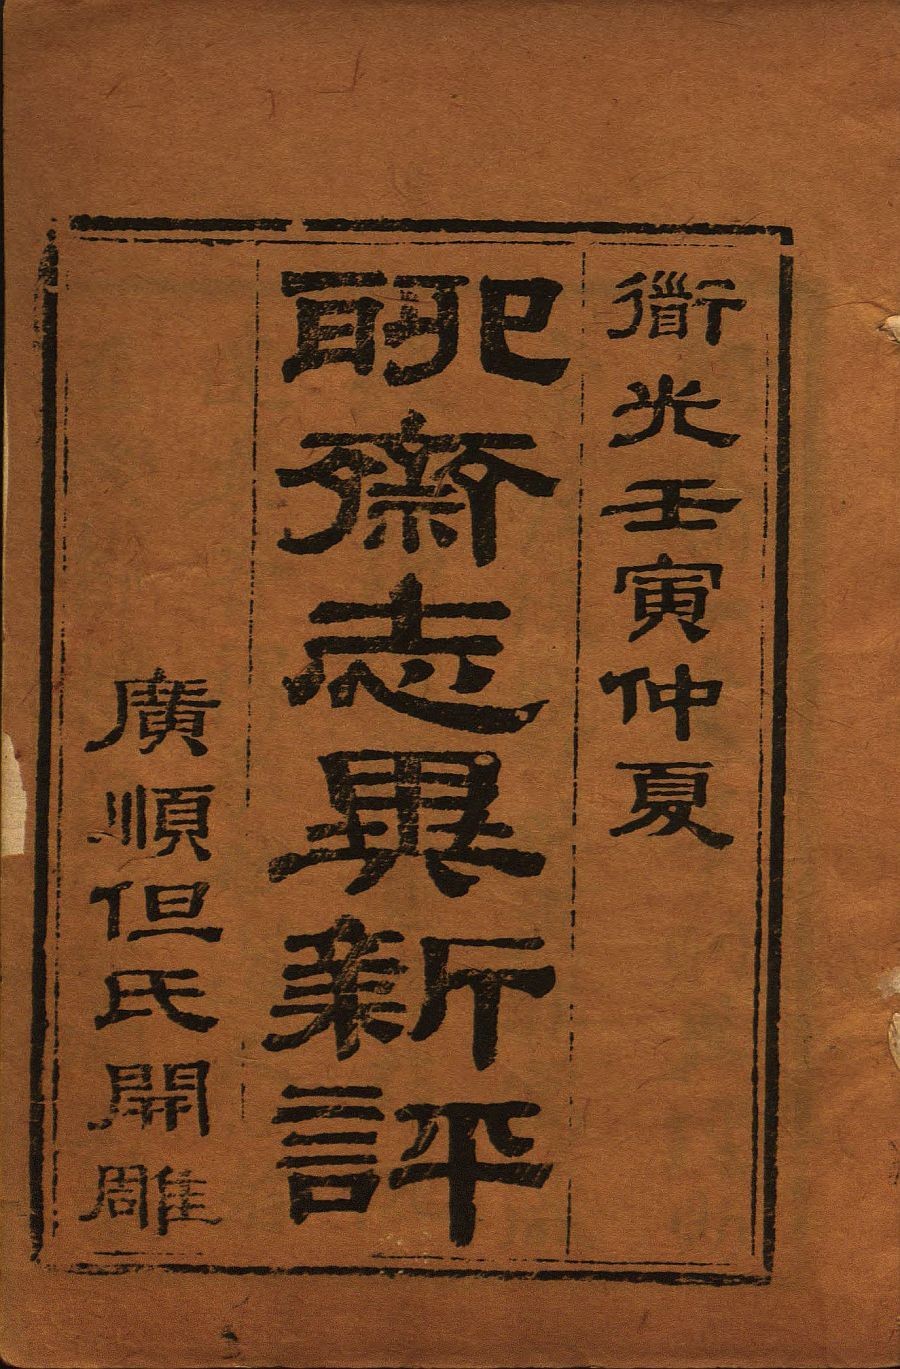 道光壬寅仲夏
聊齋志異新評
廣順但氏開雕